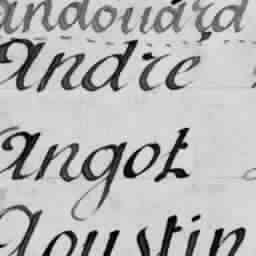 andouárd
Andre
Angot
Aoustin